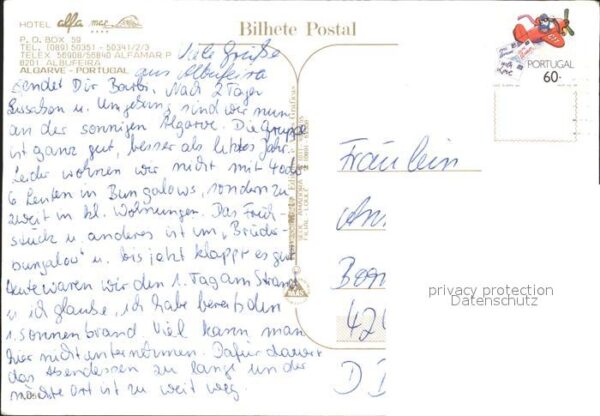 HOTEL alfa mar
****
P. O. BOX 59
TEL. (089) 50351 - 50341/2/3
TELEX 56908/56840 ALFAMAR P
8201 ALBUFEIRA
ALGARVE - PORTUGAL
Bilhete Postal
PORTUGAL
60.
Viele Grüße
aus Albufeira
sendet Dir Barbi. Nach 2 Tagen
Lissabon u. Umgebung sind wir nun
an der sonnigen Algarve. Die Gruppe
ist ganz gut, besser als letztes Jahr.
Leider wohnen wir nicht mit 4 oder
6 Leuten in Bungalows, sondern zu
zweit in kl. Wohnungen. Das Früh-
stück u. anderes ist im „Brüder-
bungalow" u. bis jetzt klappt es gut.
Heute waren wir den 1. Tag am Strand
u. ich glaube, ich habe bereits den
1. Sonnenbrand. Viel kann man
hier nicht unternehmen. Dafür dauert
das Abendessen zu lange und der
nächste Ort ist zu weit weg.
Fräulein
privacy protection
Datenschutz